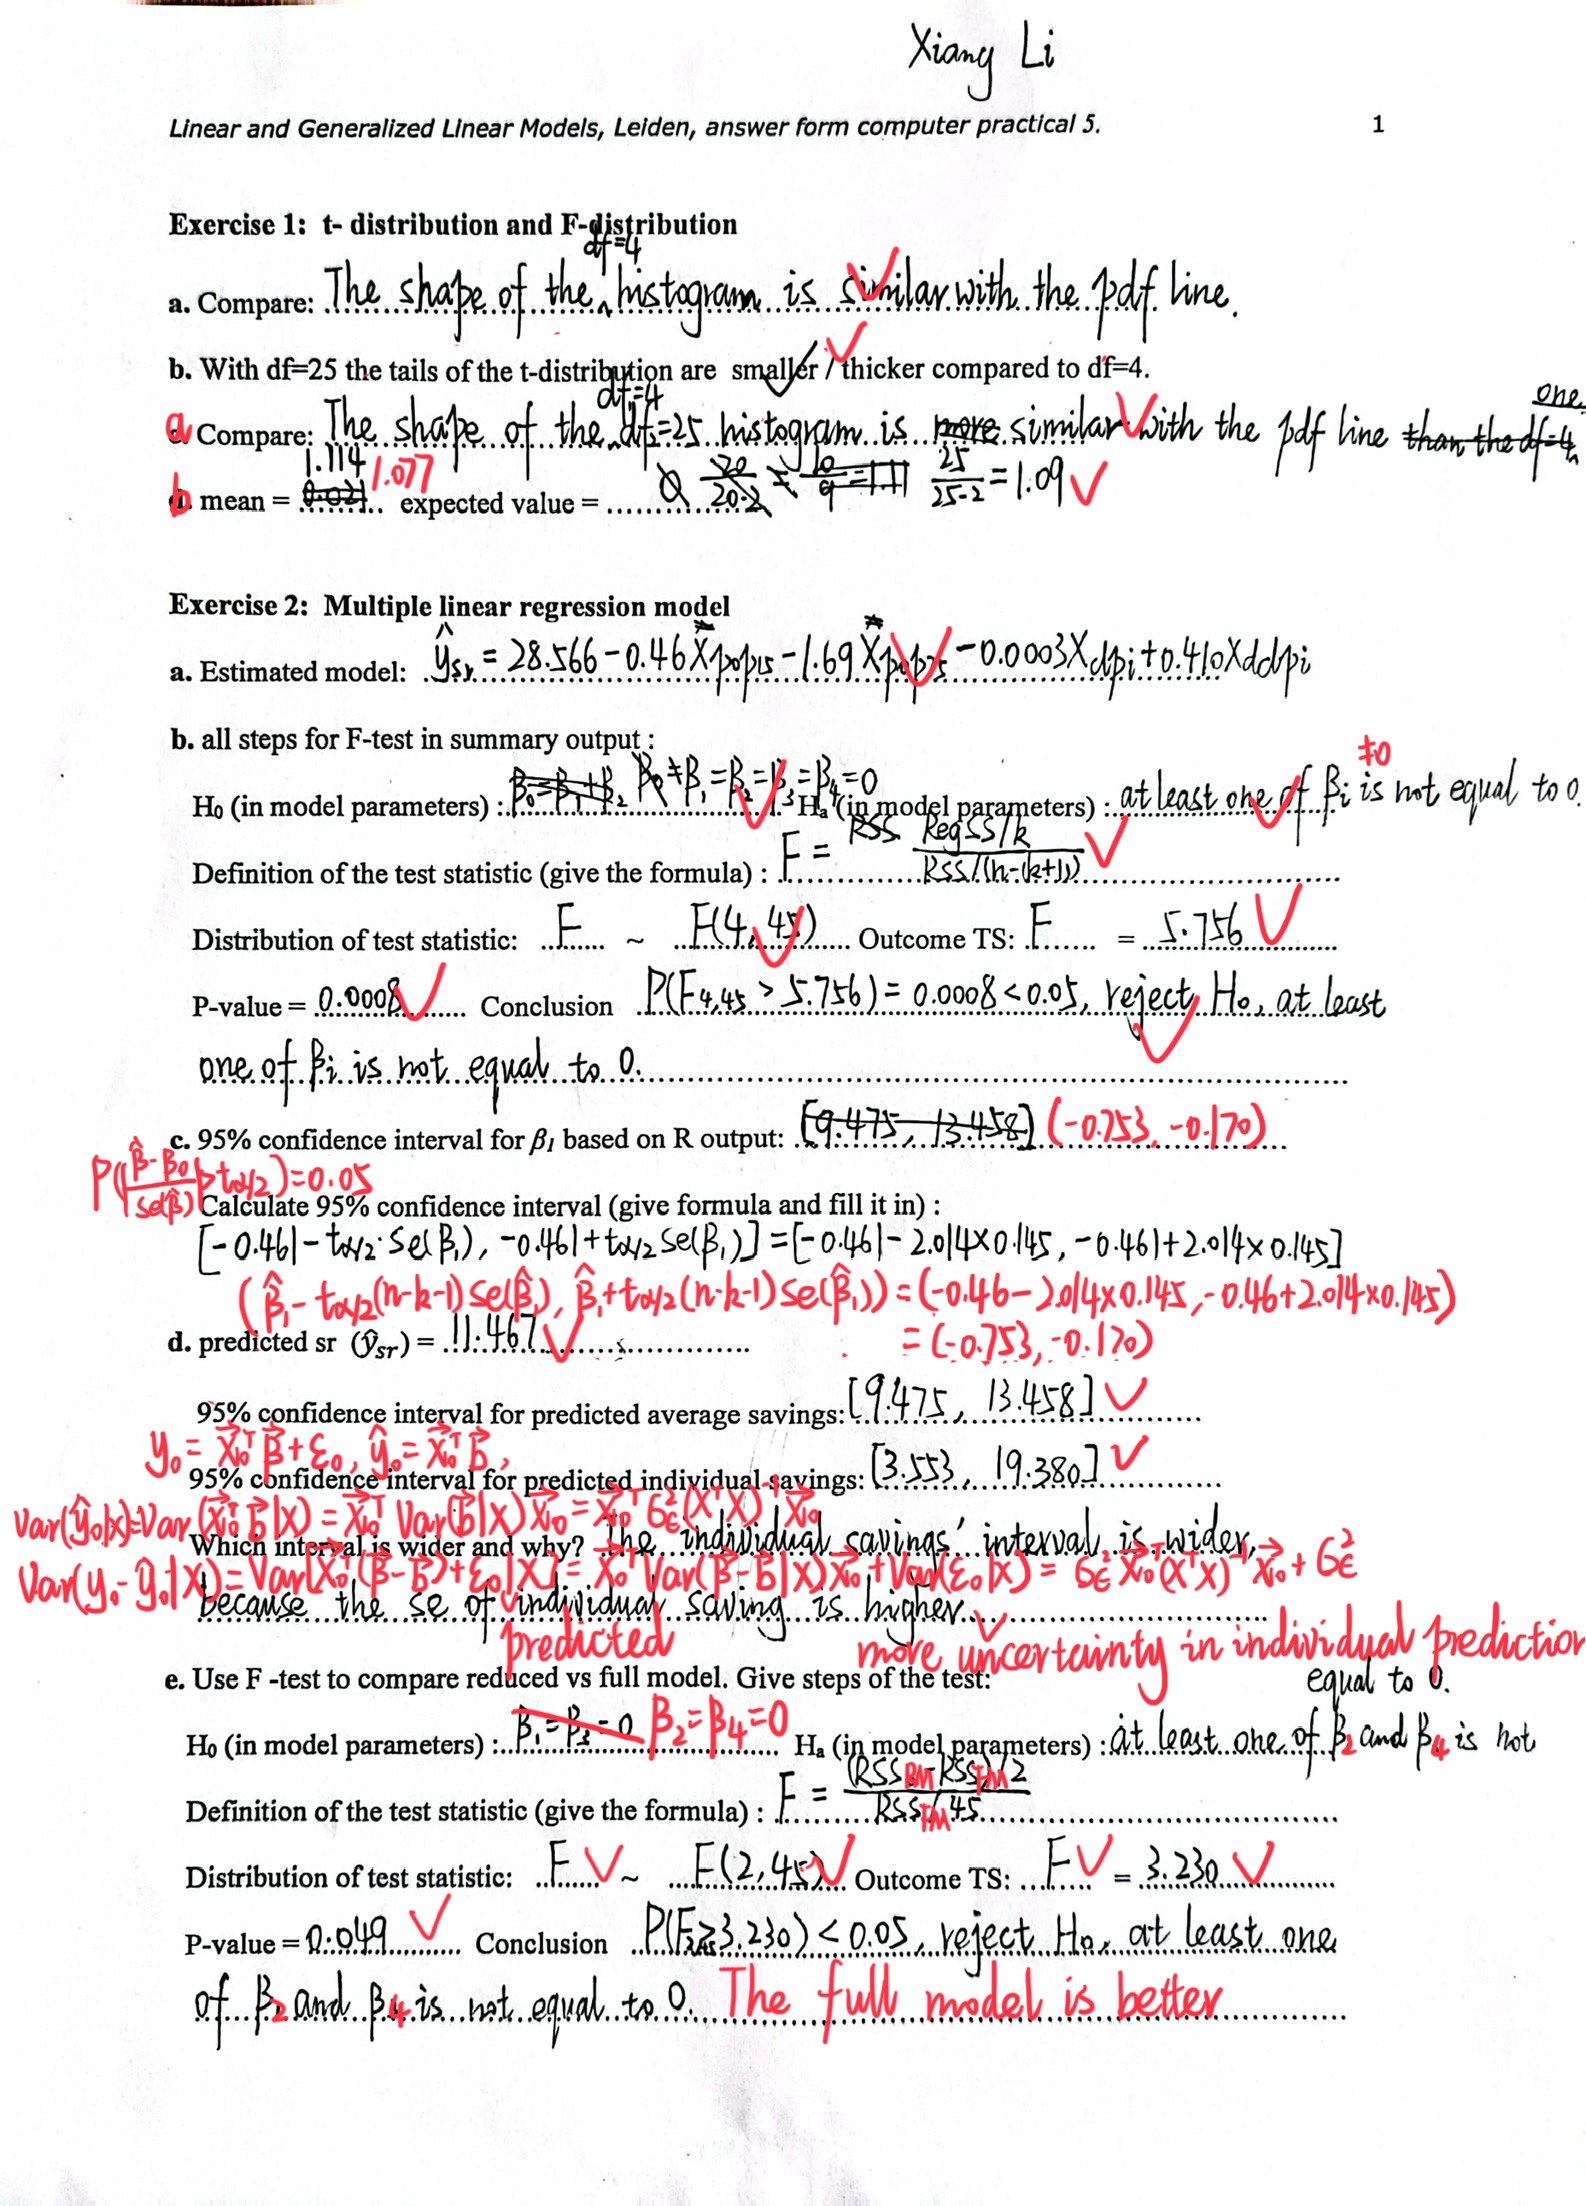 Xiang Li
Linear and Generalized Linear Models, Leiden, answer form computer practical 5. 1
Exercise 1: t- distribution and F-distribution
df=4
a. Compare: The shape of the histogram is similar with the pdf line.
b. With df=25 the tails of the t-distribution are smaller / thicker compared to df=4.
df1=4 one.
a Compare: The shape of the df2=25 histogram is more similar with the pdf line than the df=4
1.114 1.077
b mean = 0.021 expected value = 20/(20-2) = 10/9 = 1.11 25/(25-2) = 1.09
Exercise 2: Multiple linear regression model
a. Estimated model: ŷsr = 28.566 - 0.46 Xpop15 - 1.69 Xpop75 - 0.0003 Xdpi + 0.410 Xddpi
b. all steps for F-test in summary output :
≠0
H₀ (in model parameters) : β₀=β₁+β₂ β₀≠β₁=β₂=β₃=β₄=0 Hₐ (in model parameters) : at least one of βi is not equal to 0.
Definition of the test statistic (give the formula) : F = RSS (RegSS/k)/(RSS/(n-(k+1)))
Distribution of test statistic: F ~ F(4,45) Outcome TS: F = 5.756
P-value = 0.0008 Conclusion P(F4,45 > 5.756) = 0.0008 < 0.05, reject H₀, at least
one of βi is not equal to 0.
c. 95% confidence interval for β₁ based on R output: [9.475, 13.458] (-0.753, -0.170)
P(|(β̂-β₀)/se(β̂)|>tα/2)=0.05
Calculate 95% confidence interval (give formula and fill it in) :
[-0.461 - tα/2·se(β₁), -0.461 + tα/2 se(β₁)] = [-0.461 - 2.014×0.145, -0.461 + 2.014×0.145]
(β̂₁ - tα/2(n-k-1) se(β̂₁), β̂₁ + tα/2(n-k-1) se(β̂₁)) = (-0.46 - 2.014×0.145, -0.46 + 2.014×0.145)
d. predicted sr (ŷsr) = 11.467 = (-0.753, -0.170)
95% confidence interval for predicted average savings: [9.475, 13.458]
y₀ = x⃗₀ᵀβ⃗ + ε₀, ŷ₀ = x⃗₀ᵀb⃗,
95% confidence interval for predicted individual savings: [3.553, 19.380]
Var(ŷ₀|X)=Var(x⃗₀ᵀb⃗|X) = x⃗₀ᵀ Var(b⃗|X) x⃗₀ = x⃗₀ᵀ σε²(XᵀX)⁻¹ x⃗₀
Which interval is wider and why? The individual savings' interval is wider,
Var(y₀-ŷ₀|X) = Var[x⃗₀ᵀ(β⃗-b⃗)+ε₀|X] = x⃗₀ᵀ Var(β⃗-b⃗|X) x⃗₀ + Var(ε₀|X) = σε² x⃗₀ᵀ(XᵀX)⁻¹ x⃗₀ + σε²
because the se of individual saving is higher.
predicted more uncertainty in individual prediction
e. Use F -test to compare reduced vs full model. Give steps of the test: equal to 0.
H₀ (in model parameters) : β₁=β₃=0 β₂=β₄=0 Hₐ (in model parameters) : at least one of β₂ and β₄ is not
Definition of the test statistic (give the formula) : F = ((RSS RM - RSS FM)/2)/(RSS FM/45)
Distribution of test statistic: F ~ F(2,45) Outcome TS: F = 3.230
P-value = 0.049 Conclusion P(F2,45≥3.230) < 0.05, reject H₀, at least one
of β₂ and β₄ is not equal to 0. The full model is better